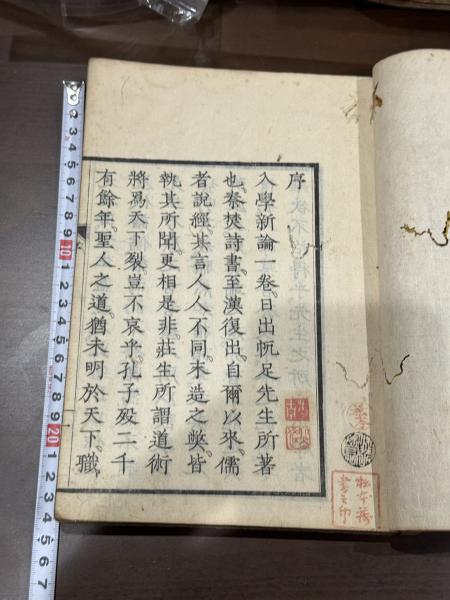 序
入學新論一卷日出帆足先生所著
也秦焚詩書至漢復出自爾以來儒
者說經其言人人不同末造之獘皆
執其所聞更相是非莊生所謂道術
將爲天下裂豈不哀乎孔子歿二千
有餘年聖人之道猶未明於天下職
2 3 4 5 6 7 8 9 10 1 2 3 4 5 6 7 8 9 20 1 2 3 4 5 6 7